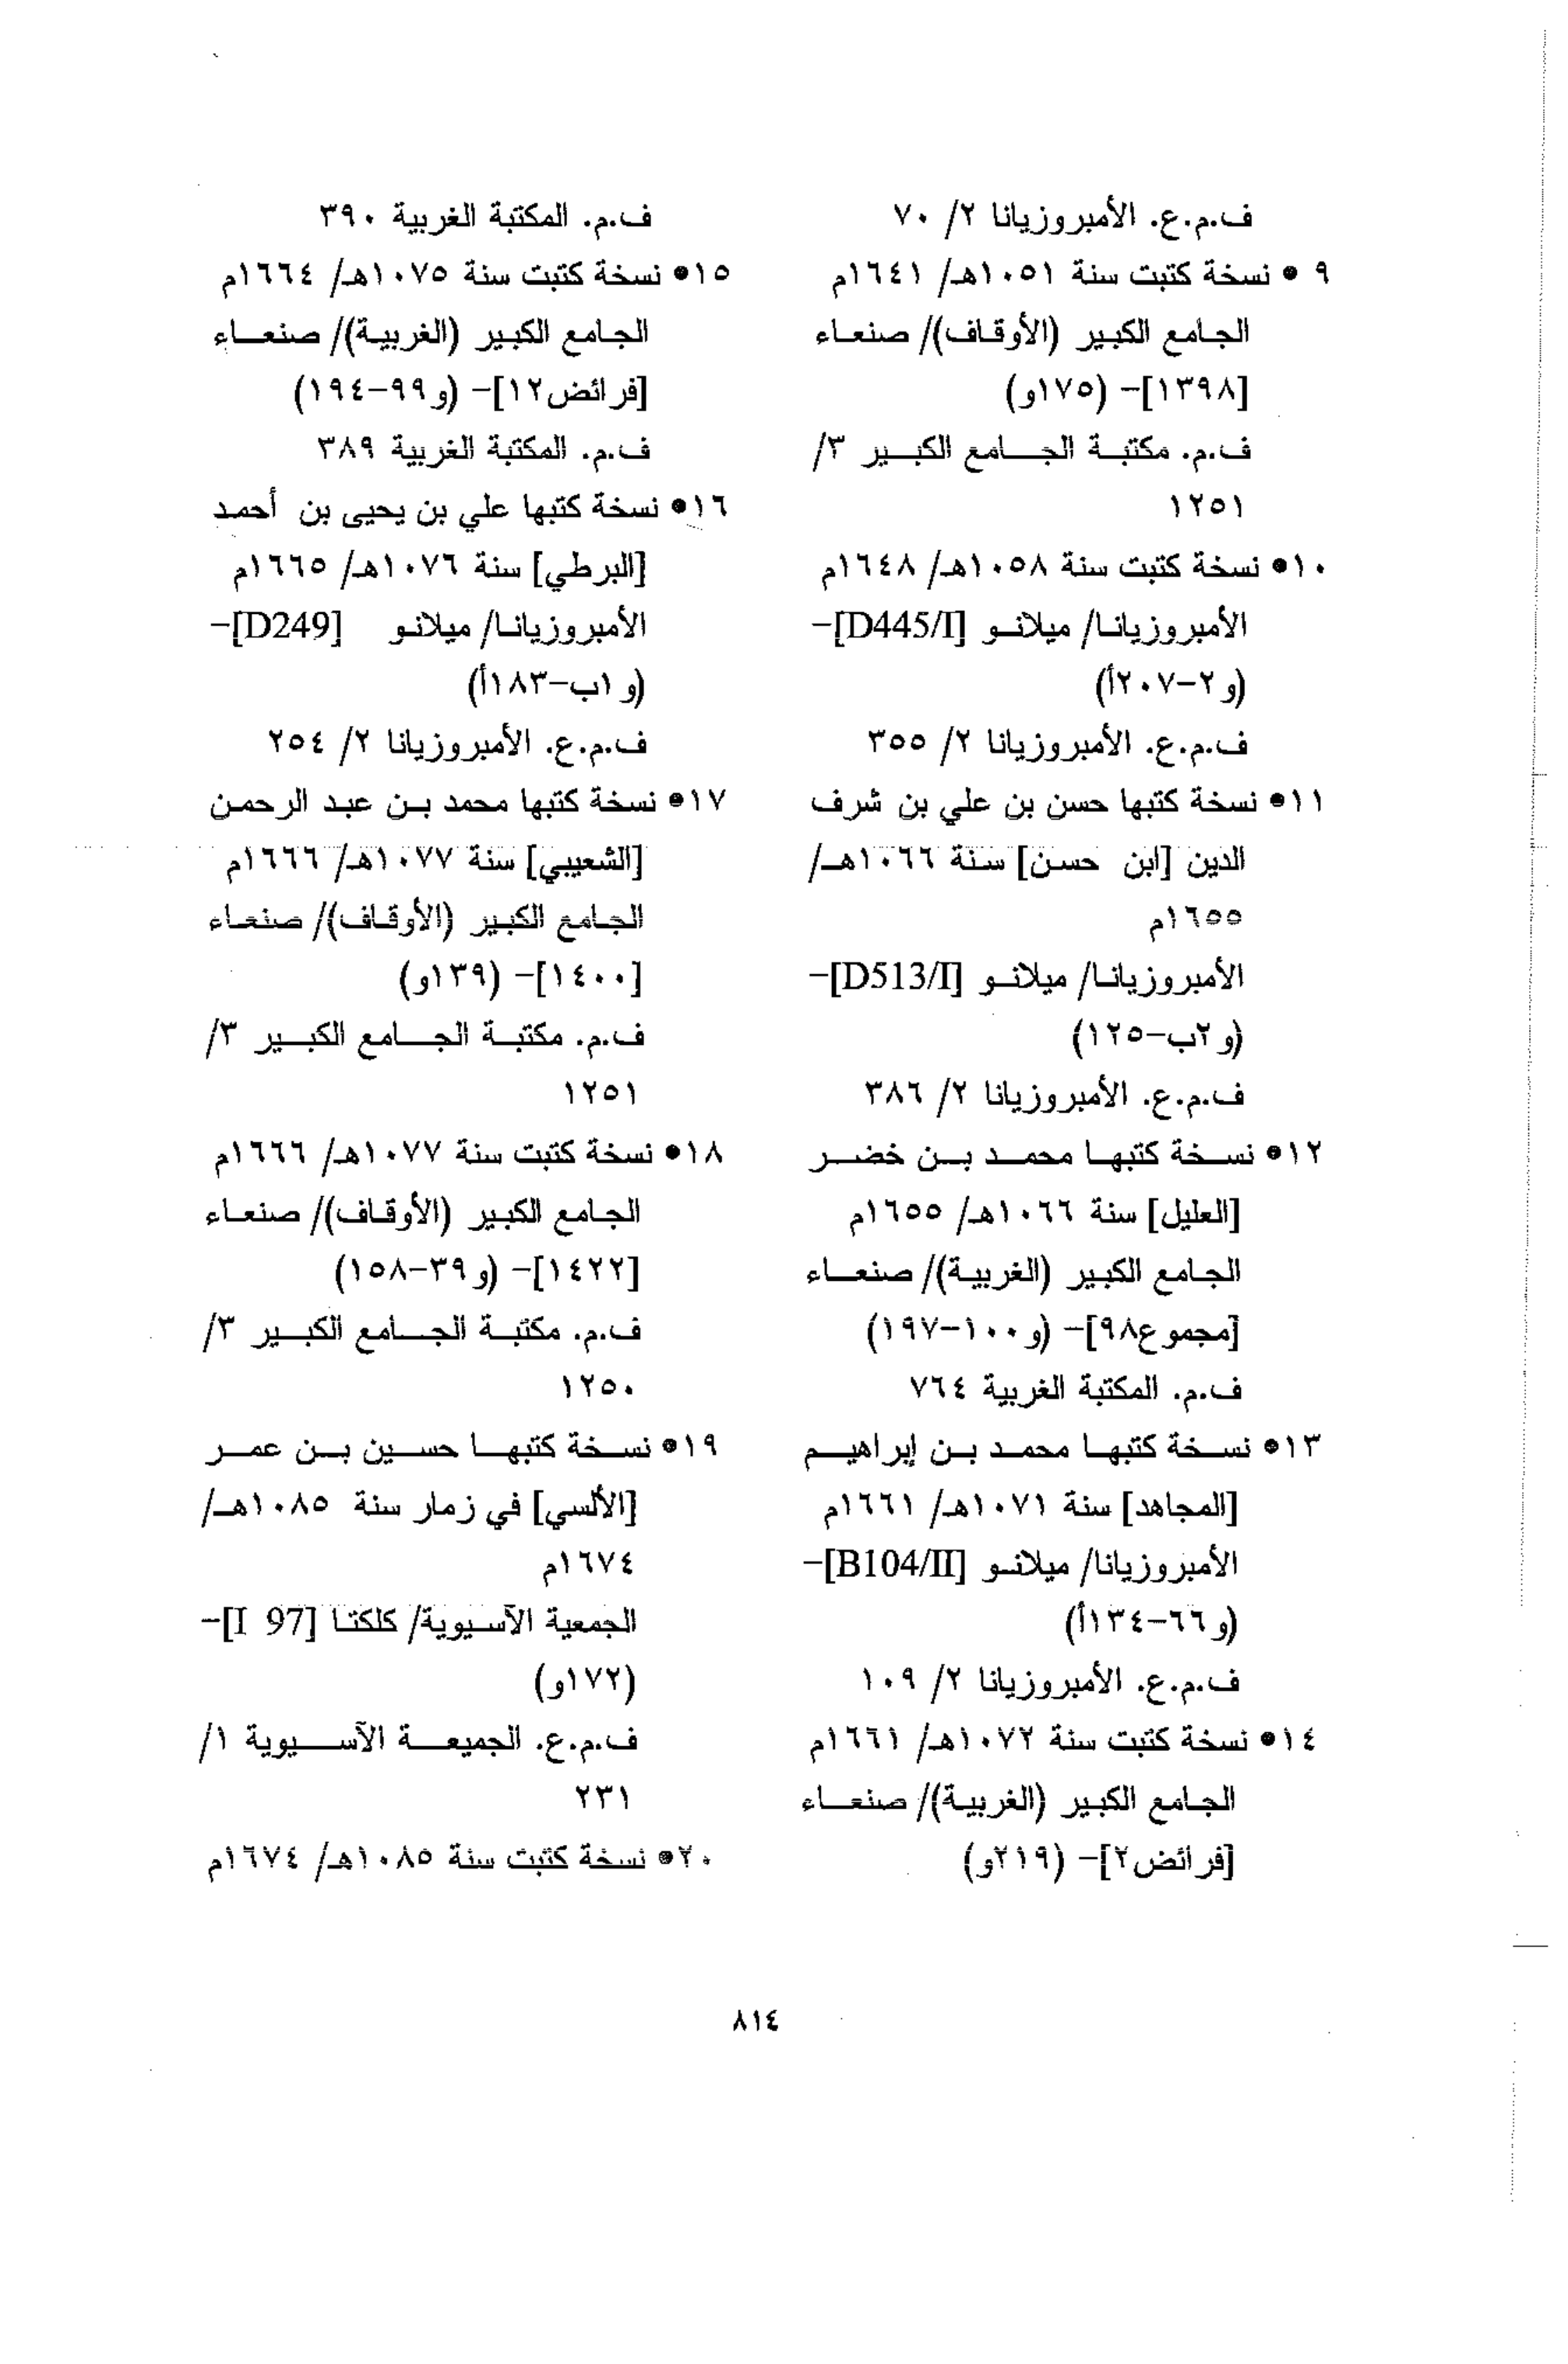 ف.م.ع. الأمبروزيانا ٢/ ٧٠
٩ • نسخة كتبت سنة ١٠٥١هـ/ ١٦٤١م
الجامع الكبير (الأوقاف)/ صنعاء
[١٣٩٨]- (١٧٥و)
ف.م. مكتبة الجامع الكبير ٣/
١٢٥١
١٠• نسخة كتبت سنة ١٠٥٨هـ/ ١٦٤٨م
الأمبروزيانا/ ميلانو [D445/I]-
(و٢-٢٠٧أ)
ف.م.ع. الأمبروزيانا ٢/ ٣٥٥
١١• نسخة كتبها حسن بن علي بن شرف
الدين [ابن حسن] سنة ١٠٦٦هـ/
١٦٥٥م
الأمبروزيانا/ ميلانو [D513/I]-
(و٢ب-١٢٥)
ف.م.ع. الأمبروزيانا ٢/ ٣٨٦
١٢• نسخة كتبها محمد بن خضر
[العليل] سنة ١٠٦٦هـ/ ١٦٥٥م
الجامع الكبير (الغربية)/ صنعاء
[مجموع٩٨]- (و١٠٠-١٩٧)
ف.م. المكتبة الغربية ٧٦٤
١٣• نسخة كتبها محمد بن إبراهيم
[المجاهد] سنة ١٠٧١هـ/ ١٦٦١م
الأمبروزيانا/ ميلانو [B104/II]-
(و٦٦-١٣٤أ)
ف.م.ع. الأمبروزيانا ٢/ ١٠٩
١٤• نسخة كتبت سنة ١٠٧٢هـ/ ١٦٦١م
الجامع الكبير (الغربية)/ صنعاء
[فرائض٢]- (٢١٩و)
ف.م. المكتبة الغربية ٣٩٠
١٥• نسخة كتبت سنة ١٠٧٥هـ/ ١٦٦٤م
الجامع الكبير (الغربية)/ صنعاء
[فرائض١٢]- (و٩٩-١٩٤)
ف.م. المكتبة الغربية ٣٨٩
١٦• نسخة كتبها علي بن يحيى بن أحمد
[البرطي] سنة ١٠٧٦هـ/ ١٦٦٥م
الأمبروزيانا/ ميلانو [D249]-
(و١ب-١٨٣أ)
ف.م.ع. الأمبروزيانا ٢/ ٢٥٤
١٧• نسخة كتبها محمد بن عبد الرحمن
[الشعيبي] سنة ١٠٧٧هـ/ ١٦٦٦م
الجامع الكبير (الأوقاف)/ صنعاء
[١٤٠٠]- (١٣٩و)
ف.م. مكتبة الجامع الكبير ٣/
١٢٥١
١٨• نسخة كتبت سنة ١٠٧٧هـ/ ١٦٦٦م
الجامع الكبير (الأوقاف)/ صنعاء
[١٤٢٢]- (و٣٩-١٥٨)
ف.م. مكتبة الجامع الكبير ٣/
١٢٥٠
١٩• نسخة كتبها حسين بن عمر
[الألسي] في زمار سنة ١٠٨٥هـ/
١٦٧٤م
الجمعية الآسيوية/ كلكتا [I 97]-
(١٧٢و)
ف.م.ع. الجميعة الآسيوية ١/
٢٣١
٢٠• نسخة كتبت سنة ١٠٨٥هـ/ ١٦٧٤م
٨١٤